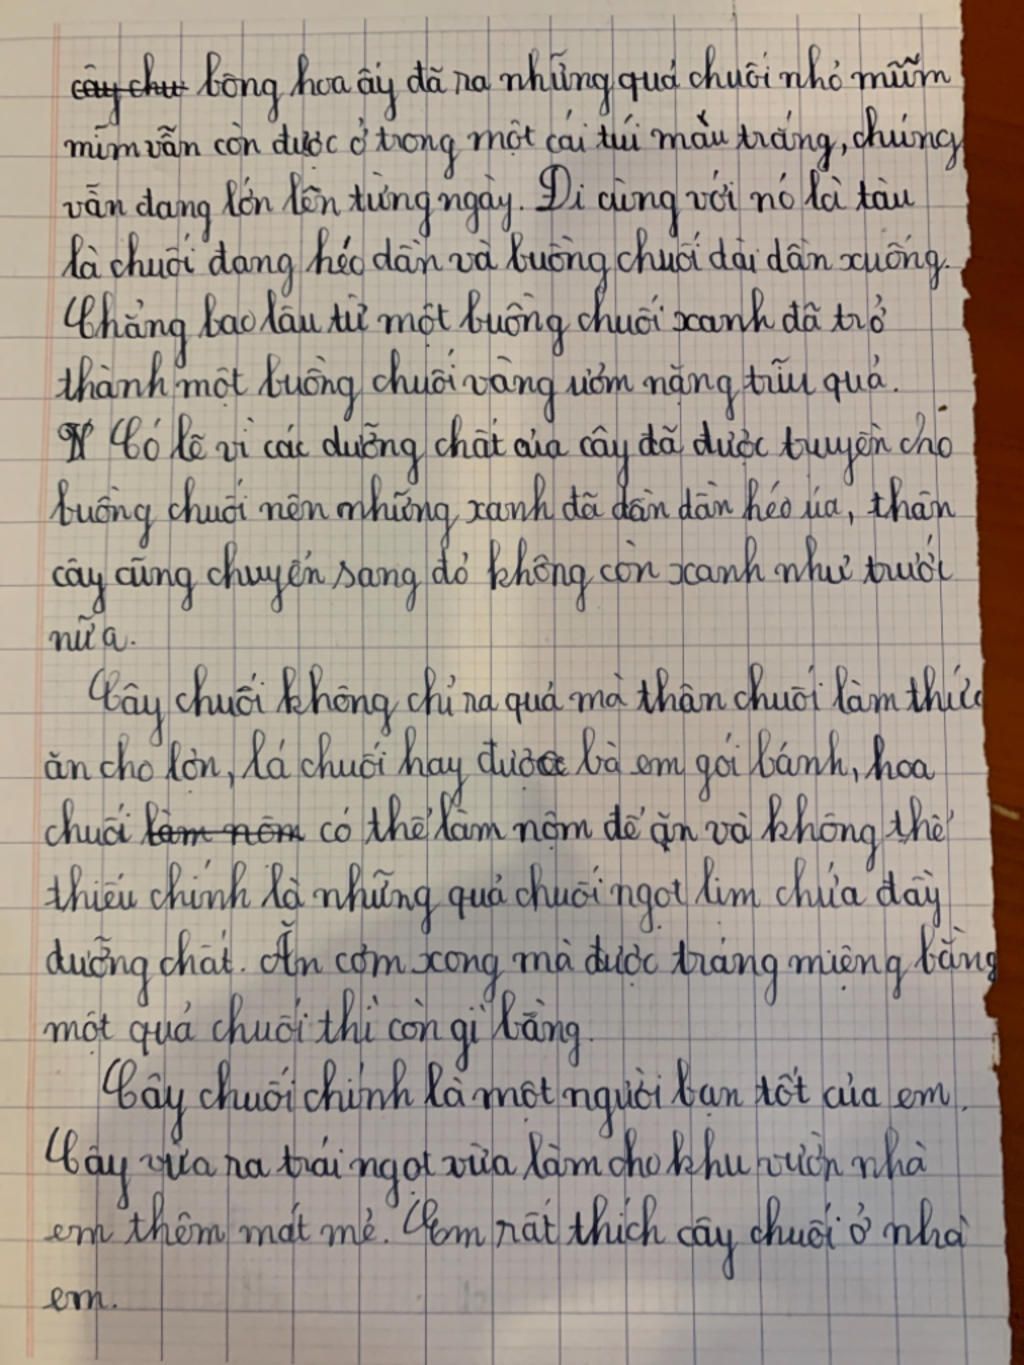 cây chu bông hoa ấy đã ra những quả chuối nhỏ mũm
mĩm vẫn còn được ở trong một cái túi mầu trắng, chúng
vẫn đang lớn lên từng ngày. Đi cùng với nó là tàu
lá chuối đang héo dần và buồng chuối dài dần xuống.
Chẳng bao lâu từ một buồng chuối xanh đã trở
thành một buồng chuối vàng ươm nặng trĩu quả.
Có lẽ vì các dưỡng chất của cây đã được truyền cho
buồng chuối nên những xanh đã dần dần héo úa, thân
cây cũng chuyển sang đỏ không còn xanh như trước
nữa.
Cây chuối không chỉ ra quả mà thân chuối làm thức
ăn cho lợn, lá chuối hay được bà em gói bánh, hoa
chuối làm nộm có thể làm nộm để ăn và không thể
thiếu chính là những quả chuối ngọt lim chứa đầy
dưỡng chất. Ăn cơm xong mà được tráng miệng bằng
một quả chuối thì còn gì bằng.
Cây chuối chính là một người bạn tốt của em.
Cây vừa ra trái ngọt vừa làm cho khu vườn nhà
em thêm mát mẻ. Em rất thích cây chuối ở nhà
em.